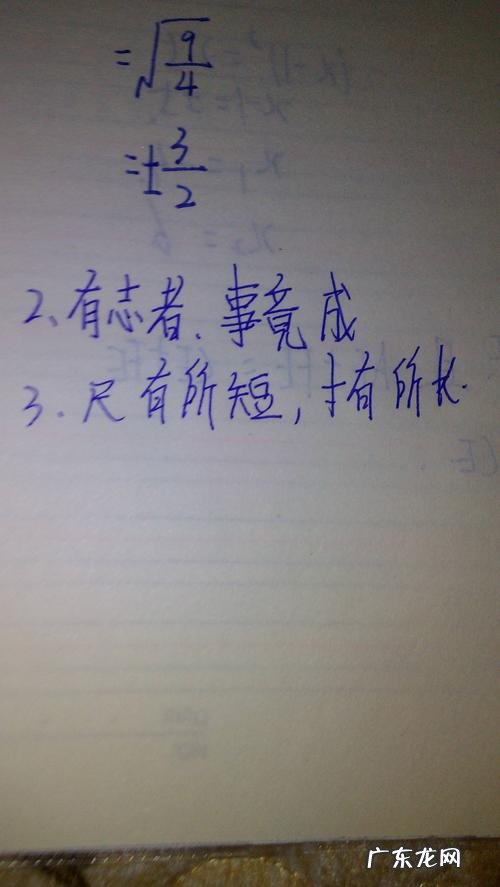 =√(9/4)
=±3/2
2、有志者.事竟成
3.尺有所短,寸有所长.
广东龙网